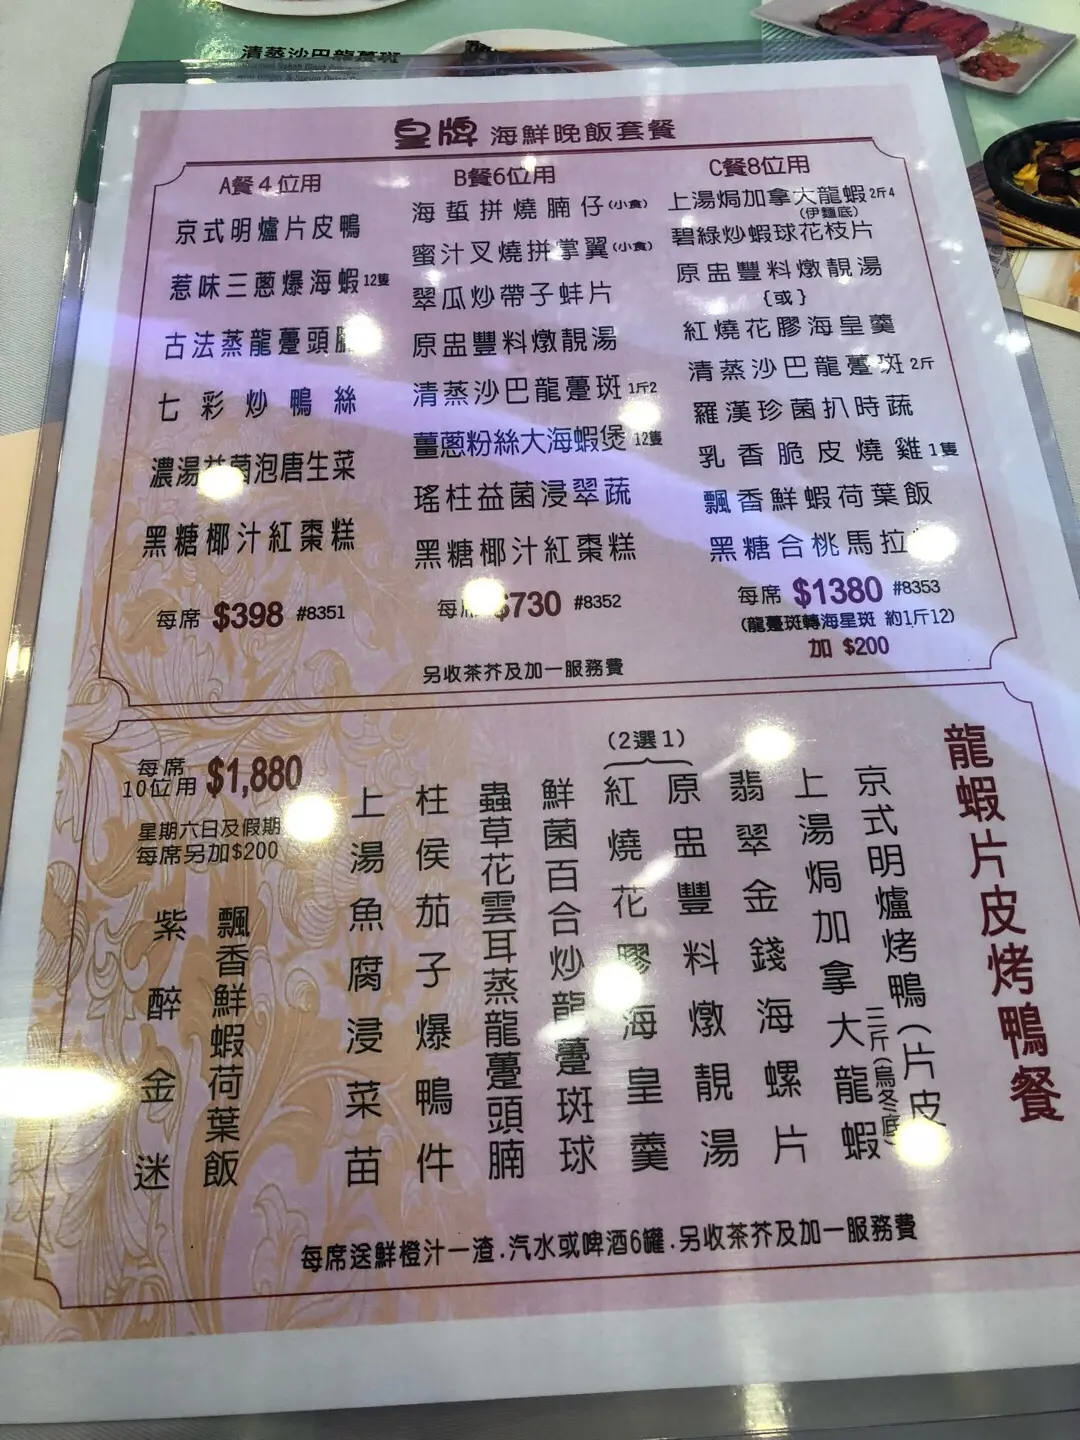 清蒸沙巴龍躉斑
皇牌 海鮮晚飯套餐
A餐4位用
京式明爐片皮鴨
惹味三蔥爆海蝦12隻
古法蒸龍躉頭腩
七彩炒鴨絲
濃湯益菌泡唐生菜
黑糖椰汁紅棗糕
每席 $398 #8351
B餐6位用
海蜇拼燒腩仔(小食)
蜜汁叉燒拼掌翼(小食)
翠瓜炒帶子蚌片
原盅豐料燉靚湯
清蒸沙巴龍躉斑1斤2
薑蔥粉絲大海蝦煲12隻
瑤柱益菌浸翠蔬
黑糖椰汁紅棗糕
每席 $730 #8352
C餐8位用
上湯焗加拿大龍蝦2斤4
(伊麵底)
碧綠炒蝦球花枝片
原盅豐料燉靚湯
{或}
紅燒花膠海皇羹
清蒸沙巴龍躉斑2斤
羅漢珍菌扒時蔬
乳香脆皮燒雞1隻
飄香鮮蝦荷葉飯
黑糖合桃馬拉
每席 $1380 #8353
(龍躉斑轉海星斑 約1斤12)
加 $200
另收茶芥及加一服務費
龍蝦片皮烤鴨餐
京式明爐烤鴨(片皮
上湯焗加拿大龍蝦三斤(烏冬底)
翡翠金錢海螺片
(2選1)
原盅豐料燉靚湯
紅燒花膠海皇羹
鮮菌百合炒龍躉斑球
蟲草花雲耳蒸龍躉頭腩
柱侯茄子爆鴨件
上湯魚腐浸菜苗
飄香鮮蝦荷葉飯
紫醉金迷
每席
10位用 $1,880
星期六日及假期
每席另加$200
每席送鮮橙汁一渣.汽水或啤酒6罐.另收茶芥及加一服務費